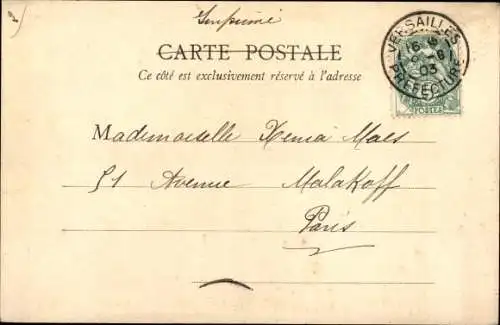 Imprimé
CARTE POSTALE
Ce côté est exclusivement réservé à l'adresse
VERSAILLES
PREFECTURE
03
POSTES
Mademoiselle Xenia Maes
51 Avenue Malakoff
Paris